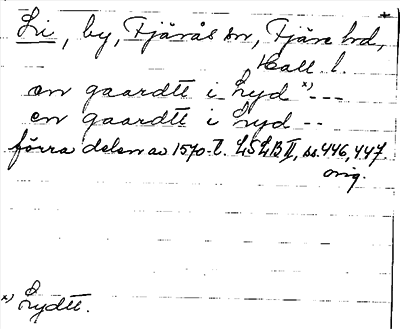 Li, by, Fjärås sn, Fjäre hd,
Hall. l.
en gaardtt i Lyd x) ---
en gaardtt i Lyd --
förra delen av 1570-t. LSLB II, ss. 446, 447.
orig.
x) Lydtt.